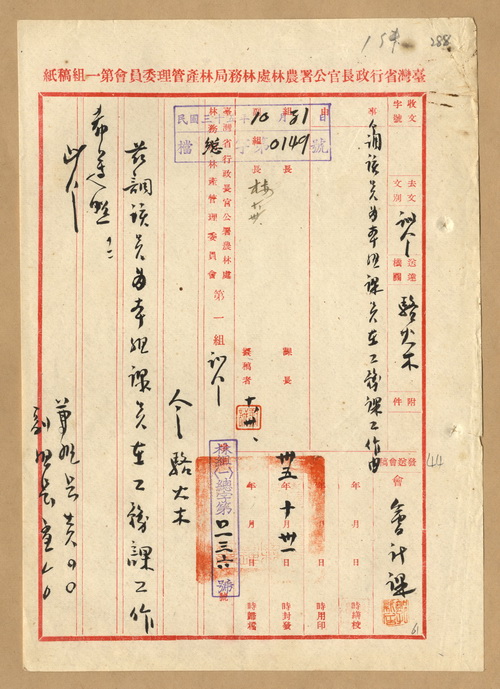 15件
288
臺灣省行政長官公署農林處林務局林產管理委員會第一組稿紙
收文
字號
去文
文別
訓令
送達
機關
駱火木
附件
事由
調該員為本組課員在工務課工作由
發送會稿
44
會
會計課
時繕校
年 月 日 時用印
卅五 年 十 月 卅一 日 時封發
年 月 日 時歸檔
組長
副組長
課長
擬稿者
十、卅一、
民國三十五年10月31日
檔 總字第0149號
臺灣省行政長官公署農林處
林務局林產管理委員會 第一組 訓令
林組(一)總字第0一三六號
令駱火木
茲調該員為本組課員在工務課工作
希遵照！！
此令
61